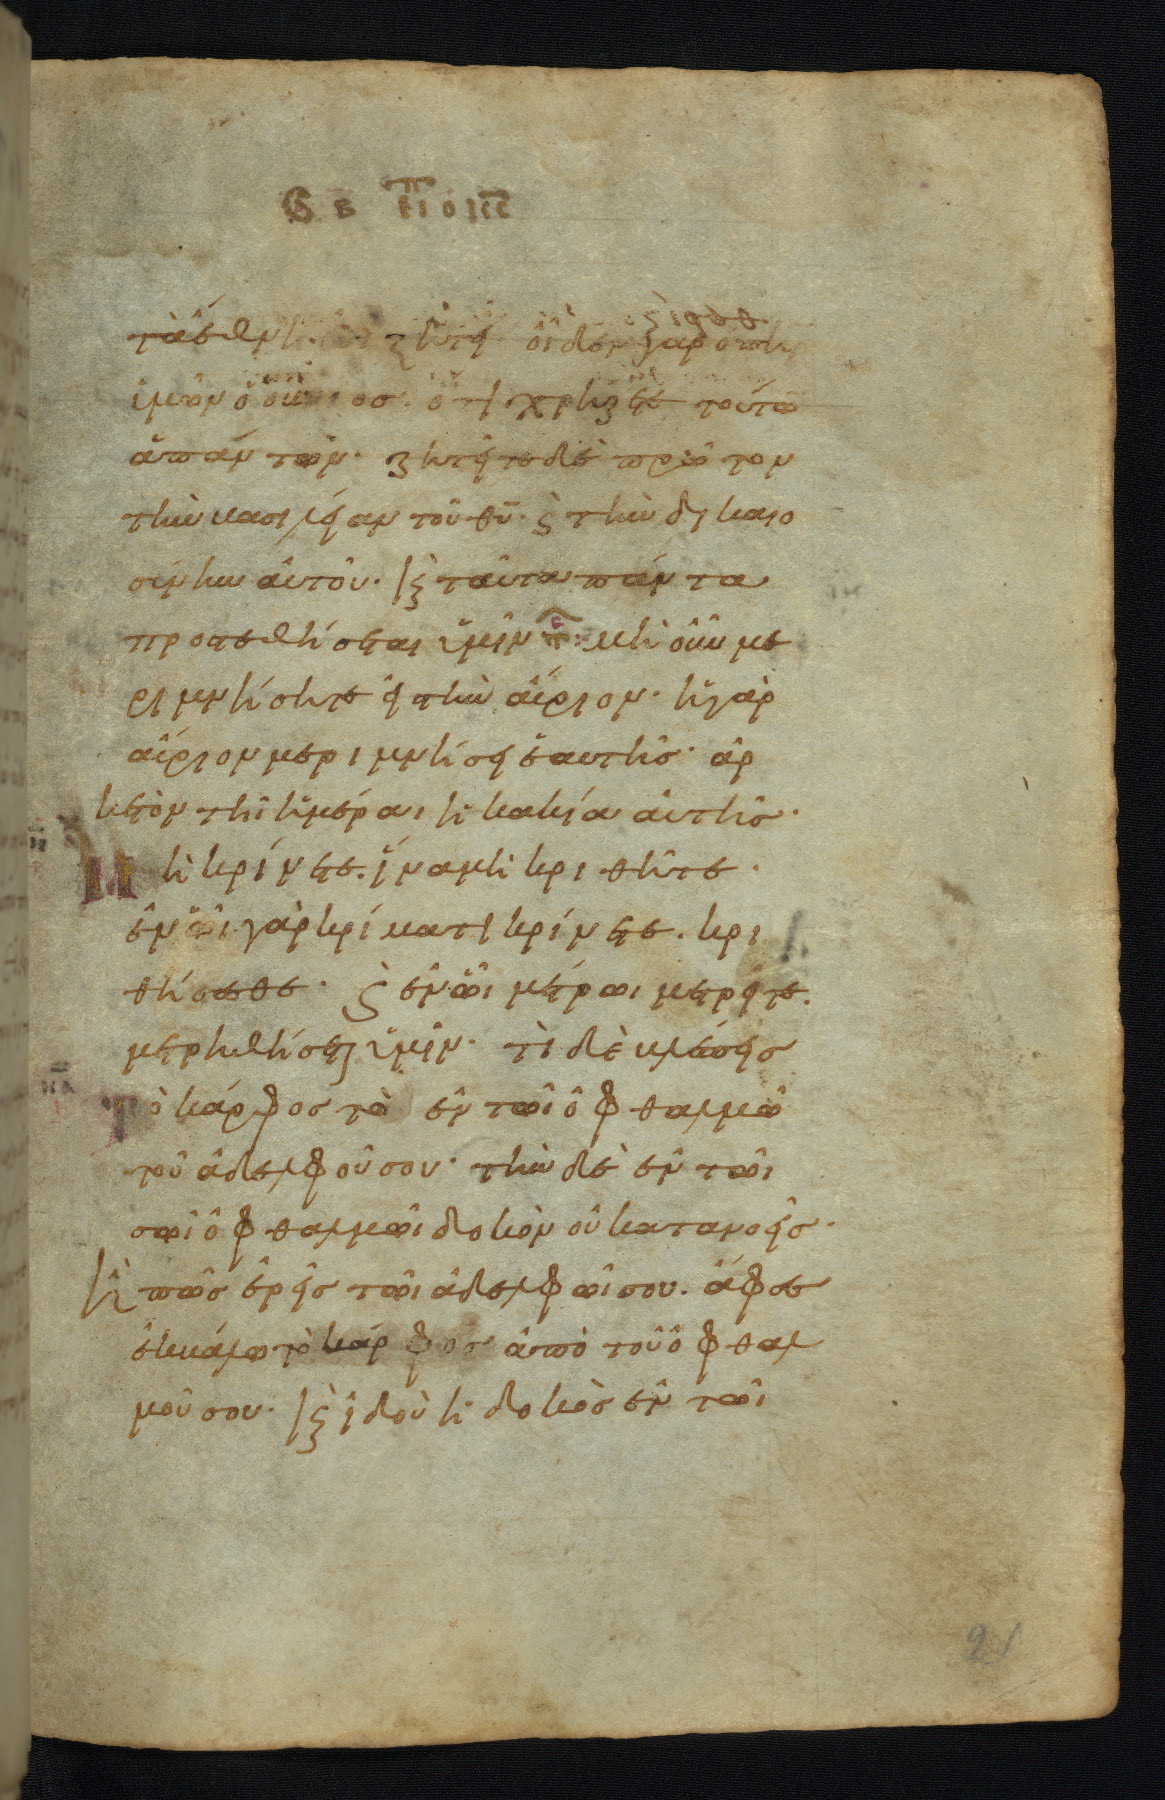 τὰ ἔθνη ζητεῖ οἶδεν γαρ ο πηρ
ὑμῶν ὁ οὐνιος. ὅτι χρήζετε τούτω
ἁπάντων. ζητεῖτε δὲ πρῶτον
τὴν βασιλείαν τοῦ θυ. ϗ τὴν δικαιο
σύνην αὐτοῦ. ϗ ταῦτα πάντα
προστεθήσεται ὑμῖν μὴ οὖν με
ριμνήσητε εἰς τὴν αὔριον. ἡ γὰρ
αὔριον μεριμνήσει ἑαυτῆς. ἀρ
κετὸν τῆι ἡμέραι ἡ κακία αὐτῆς.
Μὴ κρίνετε. ἵνα μὴ κριθῆτε.
ἐν ὧι γὰρ κρίματι κρίνετε. κρι
θήσεσθε. ϗ ἐν ὧι μέτρωι μετρεῖτε.
μετρηθήσεται ὑμῖν. τί δὲ βλέπεις
Τὸ κάρφος τὸ ἐν τῶι ὀφθαλμῶ
τοῦ ἀδελφοῦ σου. τὴν δὲ ἐν τῶι
σῶι ὀφθαλμῶι δοκὸν οὐ κατανοεῖς.
ἢ πῶς ἐρεῖς τῶι ἀδελφῶι σου. ἄφες
ἐκβάλω τὸ κάρφος ἀπὸ τοῦ ὀφθαλ
μοῦ σου. ϗ ἰδοὺ ἡ δοκὸς ἐν τῶι
21